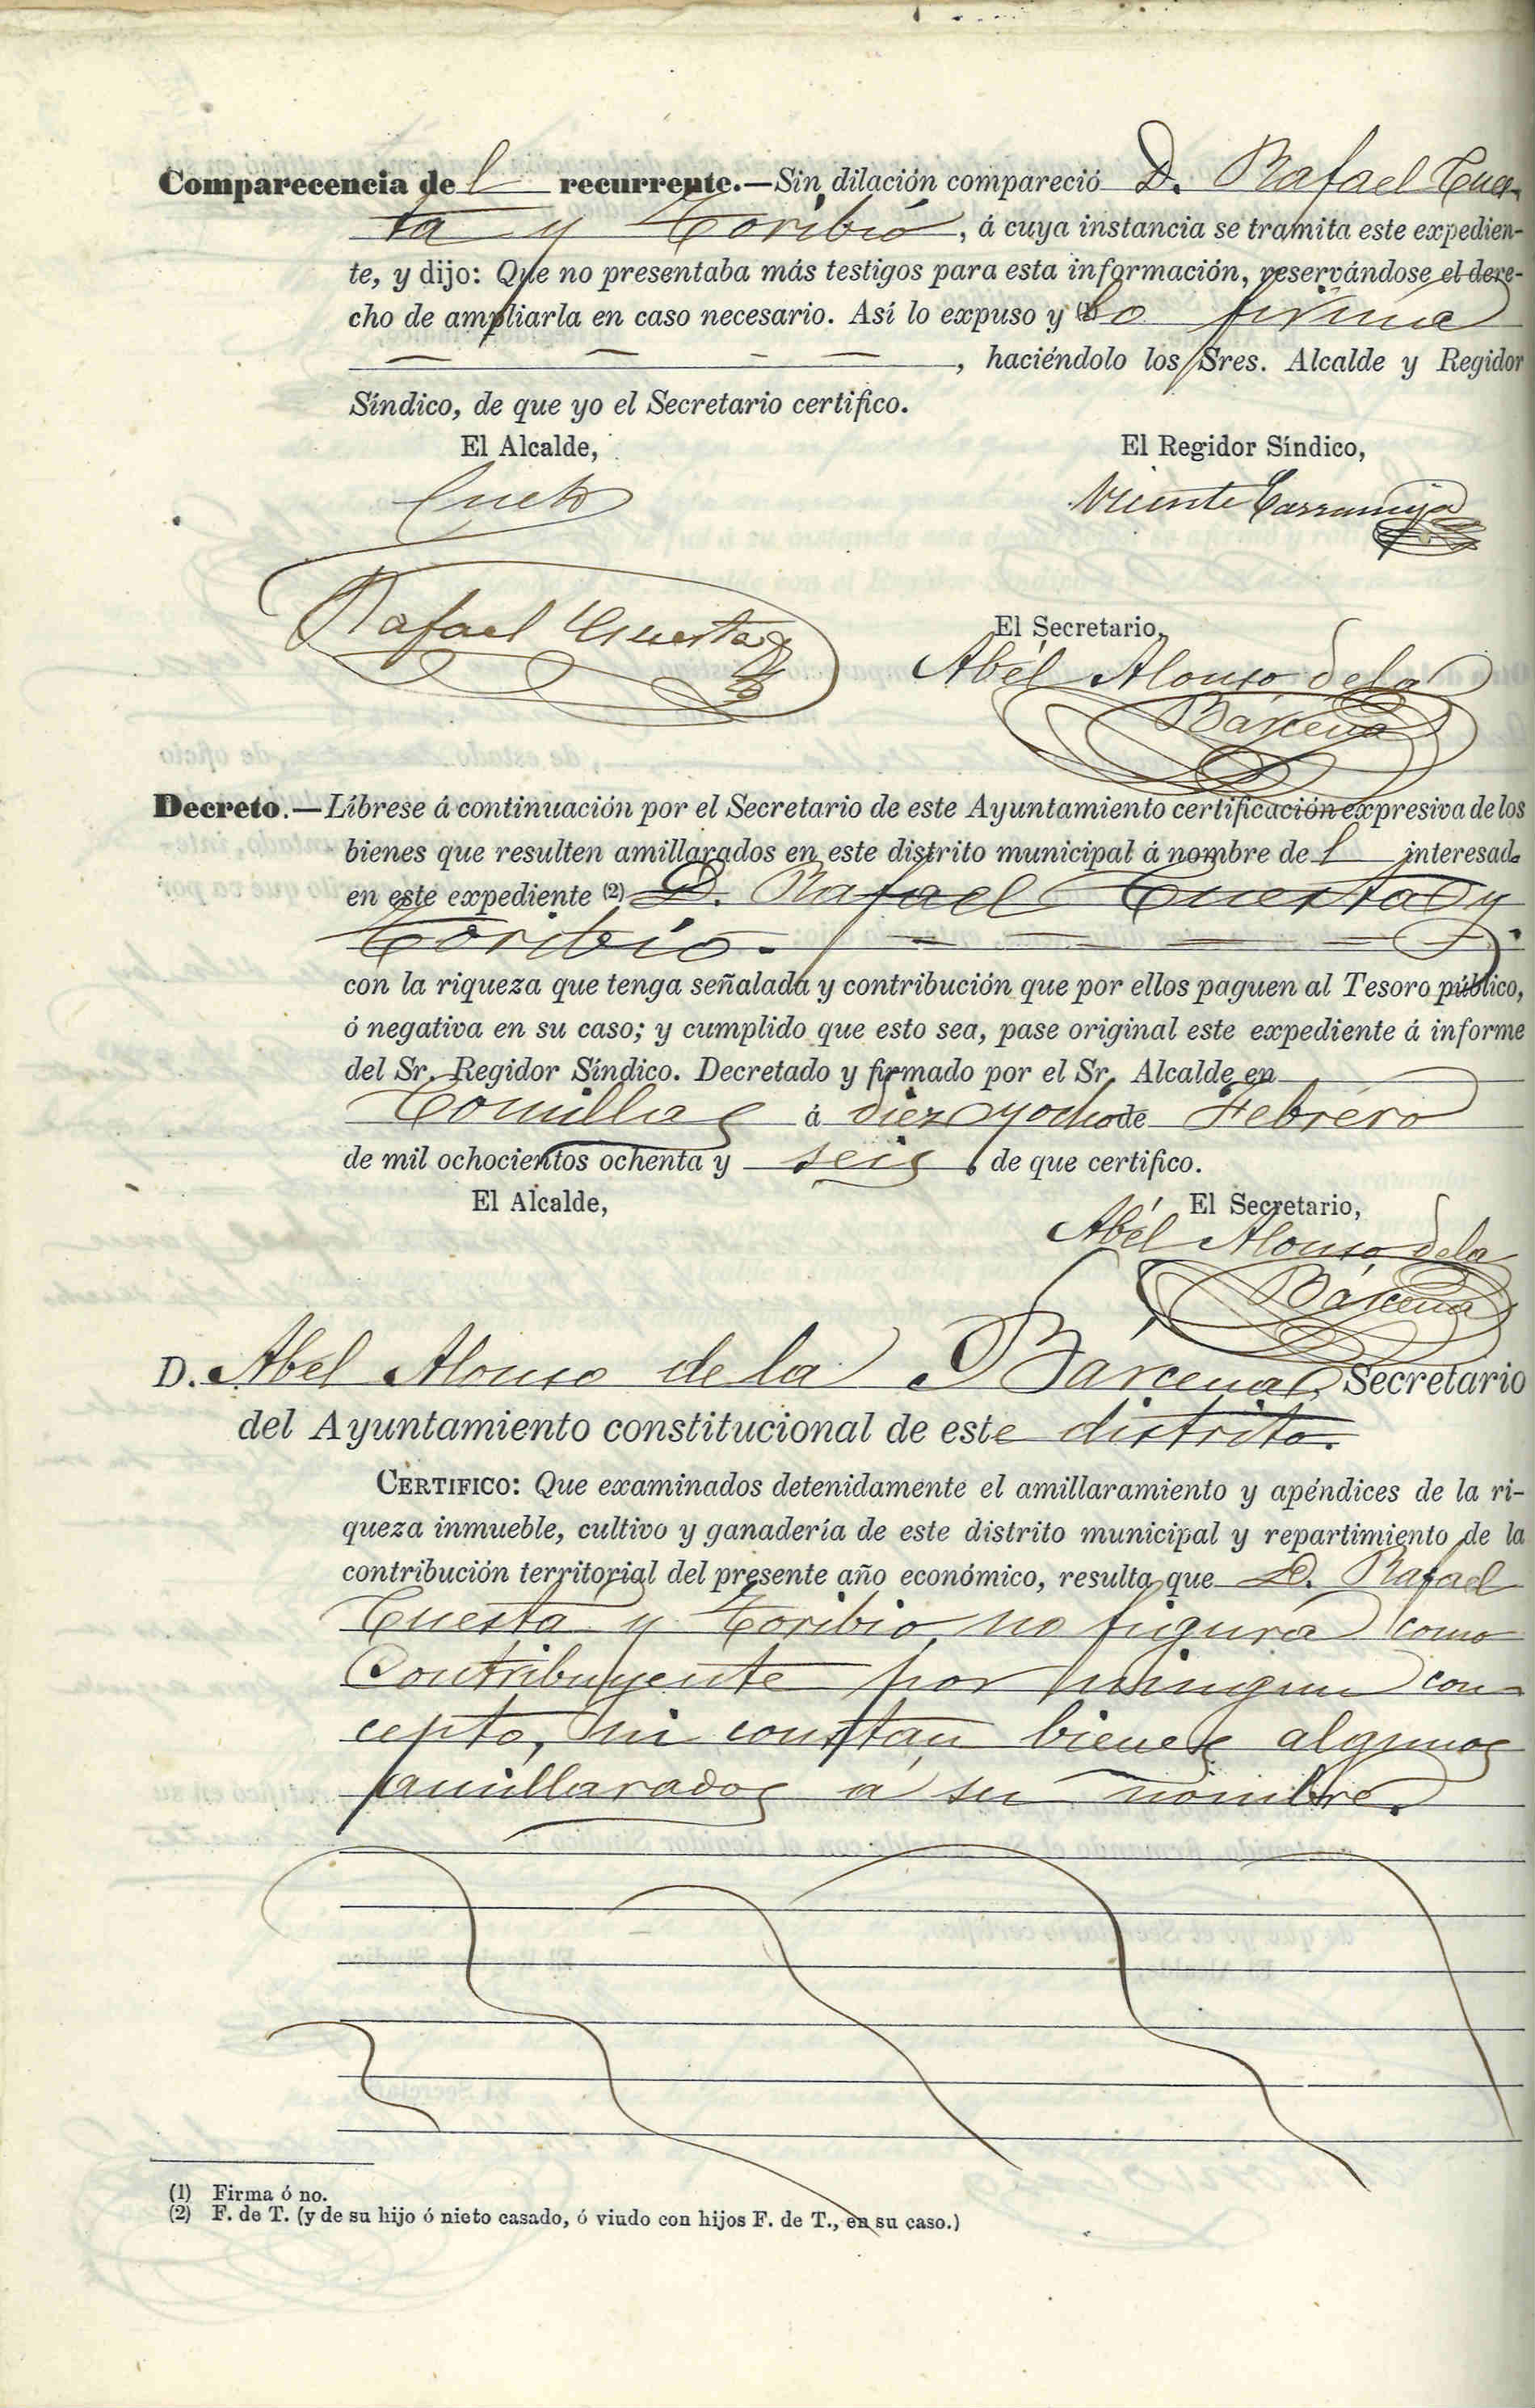 Comparecencia de l recurrente.—Sin dilación compareció D. Rafael Cues-
ta y Toribio, á cuya instancia se tramita este expedien-
te, y dijo: Que no presentaba más testigos para esta información, reservándose el dere-
cho de ampliarla en caso necesario. Así lo expuso y (1) lo firma
— — - —, haciéndolo los Sres. Alcalde y Regidor
Síndico, de que yo el Secretario certifico.
El Alcalde, El Regidor Síndico,
Cueto Vicente
Rafael Cuesta
El Secretario,
Abél Alonso de la
Bárcena
Decreto.—Líbrese á continuación por el Secretario de este Ayuntamiento certificación expresiva de los
bienes que resulten amillarados en este distrito municipal á nombre de l interesad.
en este expediente (2) D. Rafael Cuesta y
Toribio. — — — — — —
con la riqueza que tenga señalada y contribución que por ellos paguen al Tesoro público,
ó negativa en su caso; y cumplido que esto sea, pase original este expediente á informe
del Sr. Regidor Síndico. Decretado y firmado por el Sr. Alcalde en
Comillas á diez y ocho de Febrero
de mil ochocientos ochenta y seis, de que certifico.
El Alcalde, El Secretario,
Abél Alonso de la
Bárcena
D. Abél Alonso de la Bárcena, Secretario
del Ayuntamiento constitucional de este distrito.
CERTIFICO: Que examinados detenidamente el amillaramiento y apéndices de la ri-
queza inmueble, cultivo y ganadería de este distrito municipal y repartimiento de la
contribución territorial del presente año económico, resulta que D. Rafael
Cuesta y Toribio, no figura como
Contribuyente por ningun con-
cepto, ni constan bienes algunos
amillarados á su nombre.
(1) Firma ó no.
(2) F. de T. (y de su hijo ó nieto casado, ó viudo con hijos F. de T., en su caso.)